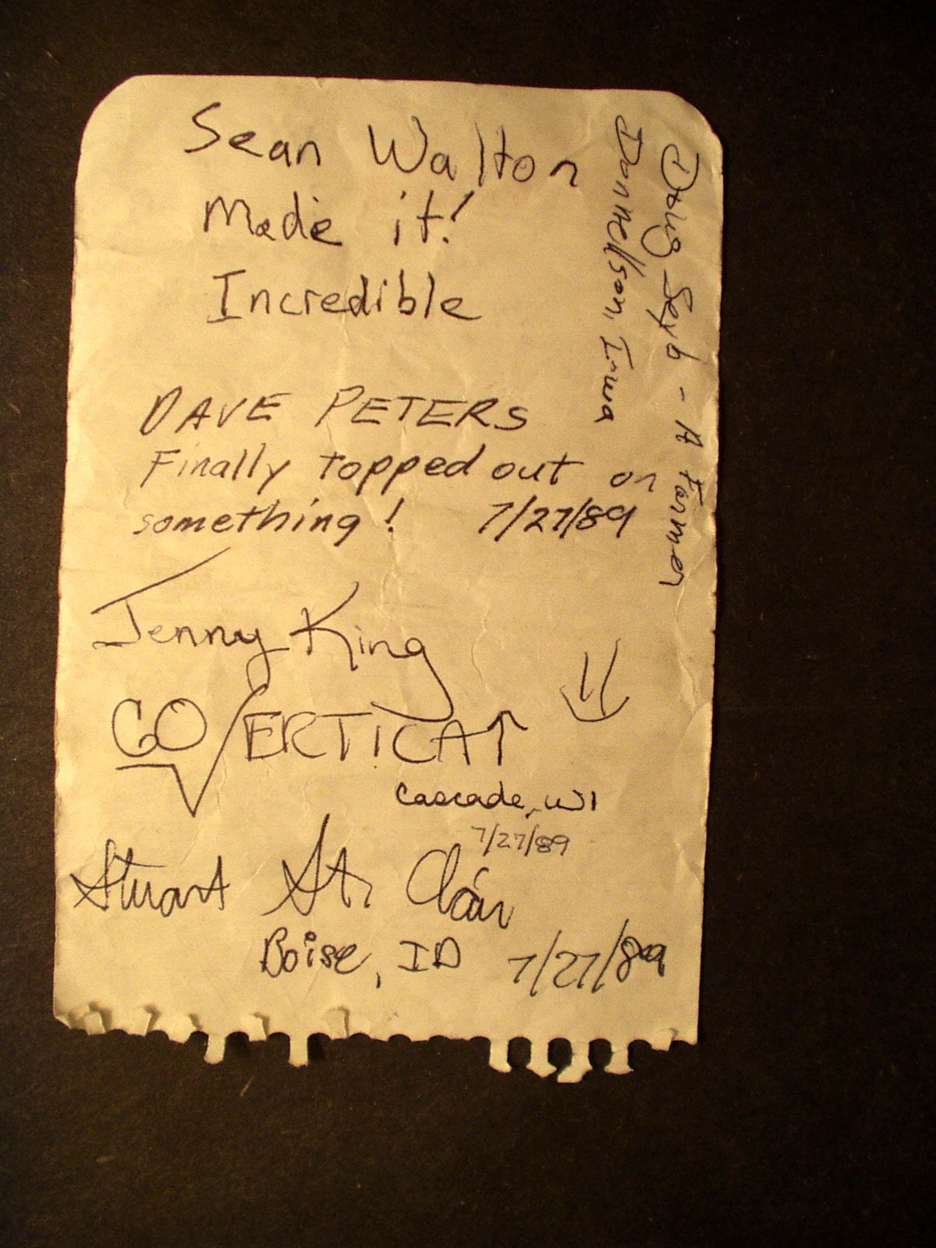 Sean Walton
Made it!
Incredible
DAVE PETERS
Finally topped out on
something! 7/27/89
Jenny King
GO VERTICAL
Cascade, WI
7/27/89
Stuart St. Clair
Boise, ID 7/27/89
Doug Seyb - A Farmer
Donnellson, Iowa